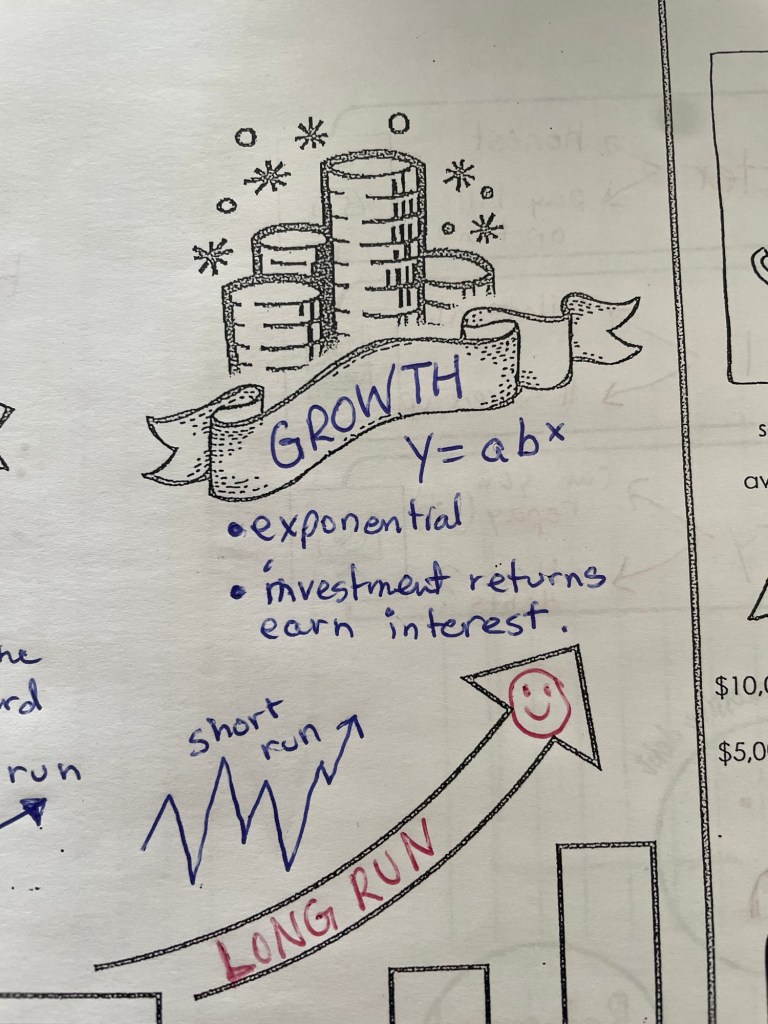 GROWTH
y = abˣ
• exponential
• investment returns
earn interest.
short
run
LONG RUN
run
$10,0
$5,00